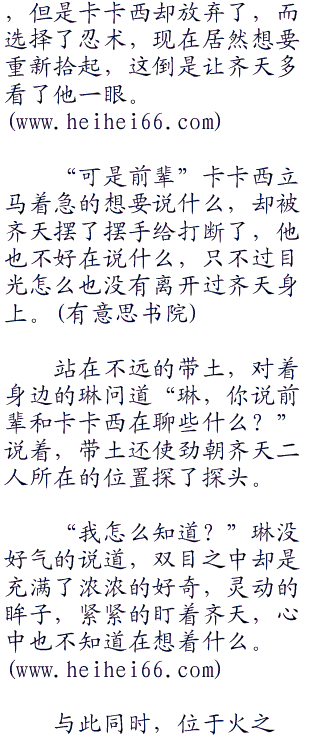 ，但是卡卡西却放弃了，而
选择了忍术，现在居然想要
重新拾起，这倒是让齐天多
看了他一眼。
(www.heihei66.com)
“可是前辈”卡卡西立
马着急的想要说什么，却被
齐天摆了摆手给打断了，他
也不好在说什么，只不过目
光怎么也没有离开过齐天身
上。(有意思书院)
站在不远的带土，对着
身边的琳问道“琳，你说前
辈和卡卡西在聊些什么？”
说着，带土还使劲朝齐天二
人所在的位置探了探头。
“我怎么知道？”琳没
好气的说道，双目之中却是
充满了浓浓的好奇，灵动的
眸子，紧紧的盯着齐天，心
中也不知道在想着什么。
(www.heihei66.com)
与此同时，位于火之